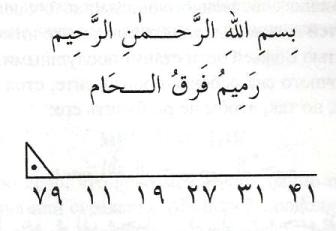 بِسمِ اللهِ الرَّحـمٰنِ الرَّحِيم
رَمِيمُ فَرقُ الـــحَام
٧٩ ١١ ١٩ ٢٧ ٣١ ٤١